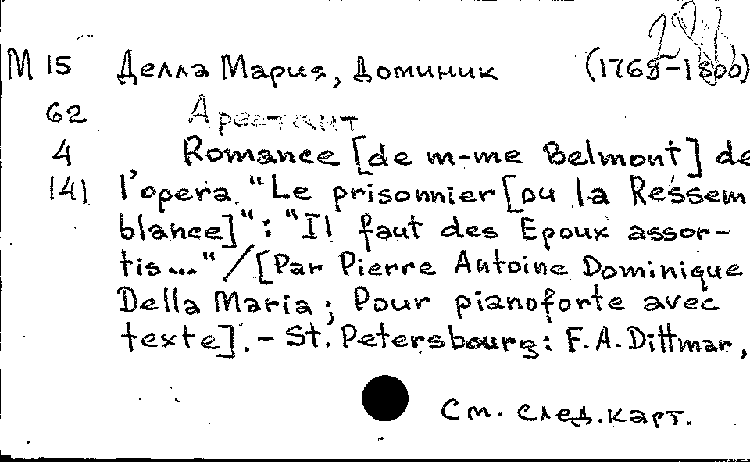 М 15 Делла Мария, Доминик (1768-1800)
62 Арестант
4 Romance [de m-me Belmont] de
141 l'opera "Le prisonnier [ou la Ressem
blance]": "Il faut des Epoux assor-
tis..." / [Par Pierre Antoine Dominique
Della Maria; Pour pianoforte avec
texte]. - St. Petersbourg: F.A. Dittmar,
См. след. карт.